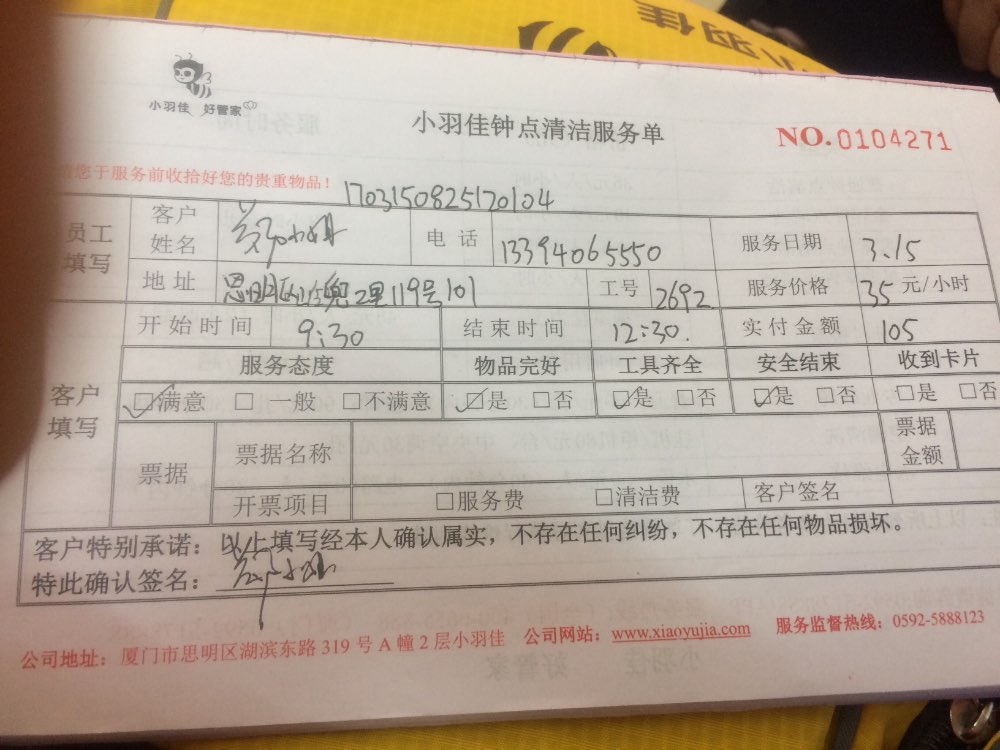 小羽佳
小羽佳 好管家
小羽佳钟点清洁服务单
NO.0104271
请您于服务前收拾好您的贵重物品！
170315082517 0104
员工填写 客户姓名 郑小姐 电话 13394065550 服务日期 3.15
地址 思明区 2里119号101 工号 2692 服务价格 35 元/小时
开始时间 9:30 结束时间 12:30. 实付金额 105
客户填写 服务态度 物品完好 工具齐全 安全结束 收到卡片
☑满意 □一般 □不满意 ☑是 □否 ☑是 □否 ☑是 □否 □是 □否
票据 票据名称 票据金额
开票项目 □服务费 □清洁费 客户签名
客户特别承诺：以上填写经本人确认属实，不存在任何纠纷，不存在任何物品损坏。
特此确认签名：郑小姐
公司地址：厦门市思明区湖滨东路 319 号 A 幢 2 层小羽佳 公司网站：www.xiaoyujia.com 服务监督热线：0592-5888123